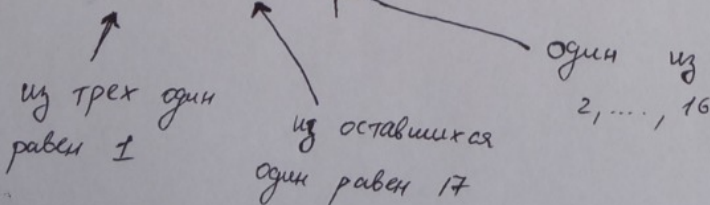 из трех один
равен 1
из оставшихся
один равен 17
один из
2, ...., 16